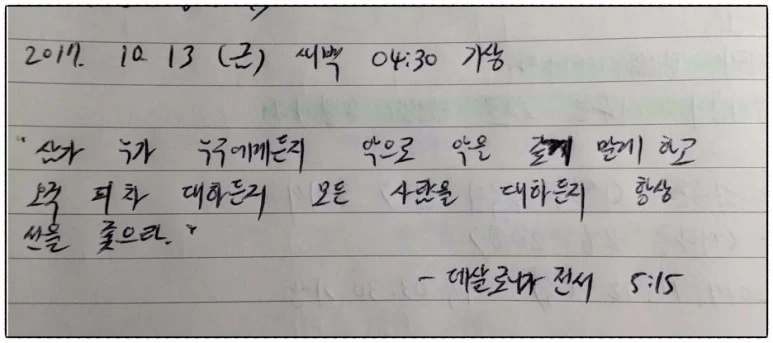 2017. 10 13 (금) 새벽 04:30 기상
"삼가 누가 누구에게든지 악으로 악을 갚지 말게 하고
오직 피차 대하든지 모든 사람을 대하든지 항상
선을 좇으라."
- 데살로니가 전서 5:15